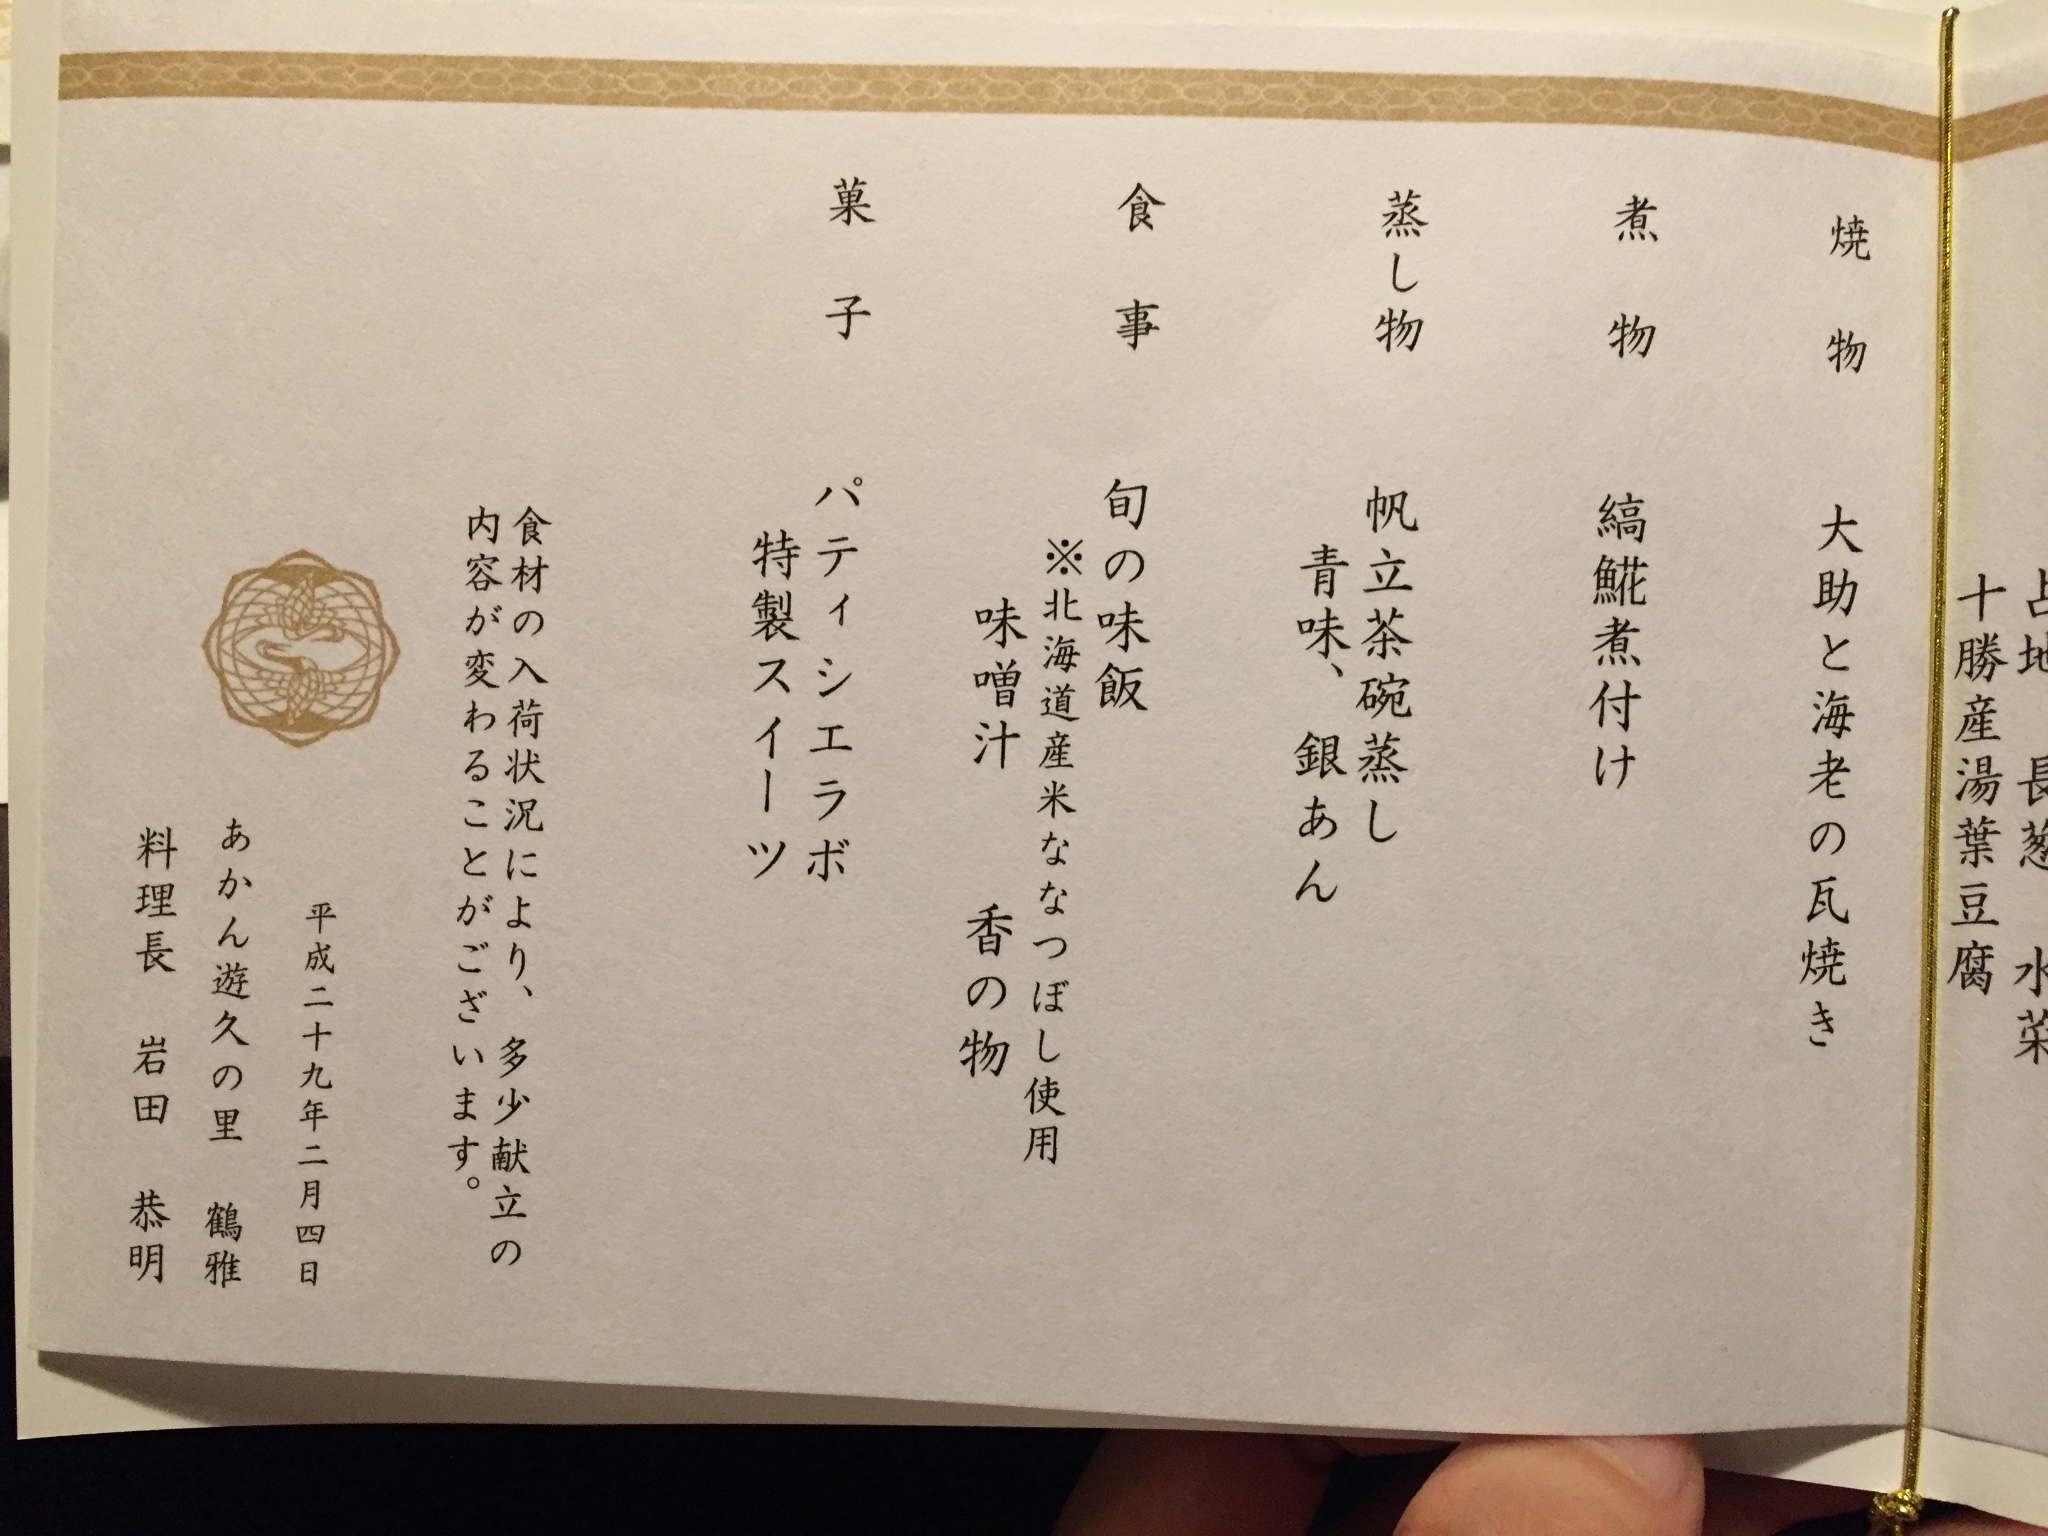 占地　長葱　水菜
十勝産湯葉豆腐
焼物
大助と海老の瓦焼き
煮物
縞𩸽煮付け
蒸し物
帆立茶碗蒸し
青味、銀あん
食事
旬の味飯
※北海道産米ななつぼし使用
味噌汁　香の物
菓子
パティシエラボ
特製スイーツ
食材の入荷状況により、多少献立の
内容が変わることがございます。
平成二十九年二月四日
あかん遊久の里　鶴雅
料理長　岩田　恭明